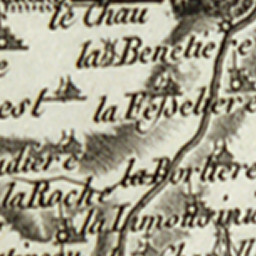 le Chau
la Benetiere
est la Fesseliere
udiere
la Borliere
la Roche
la Limousini